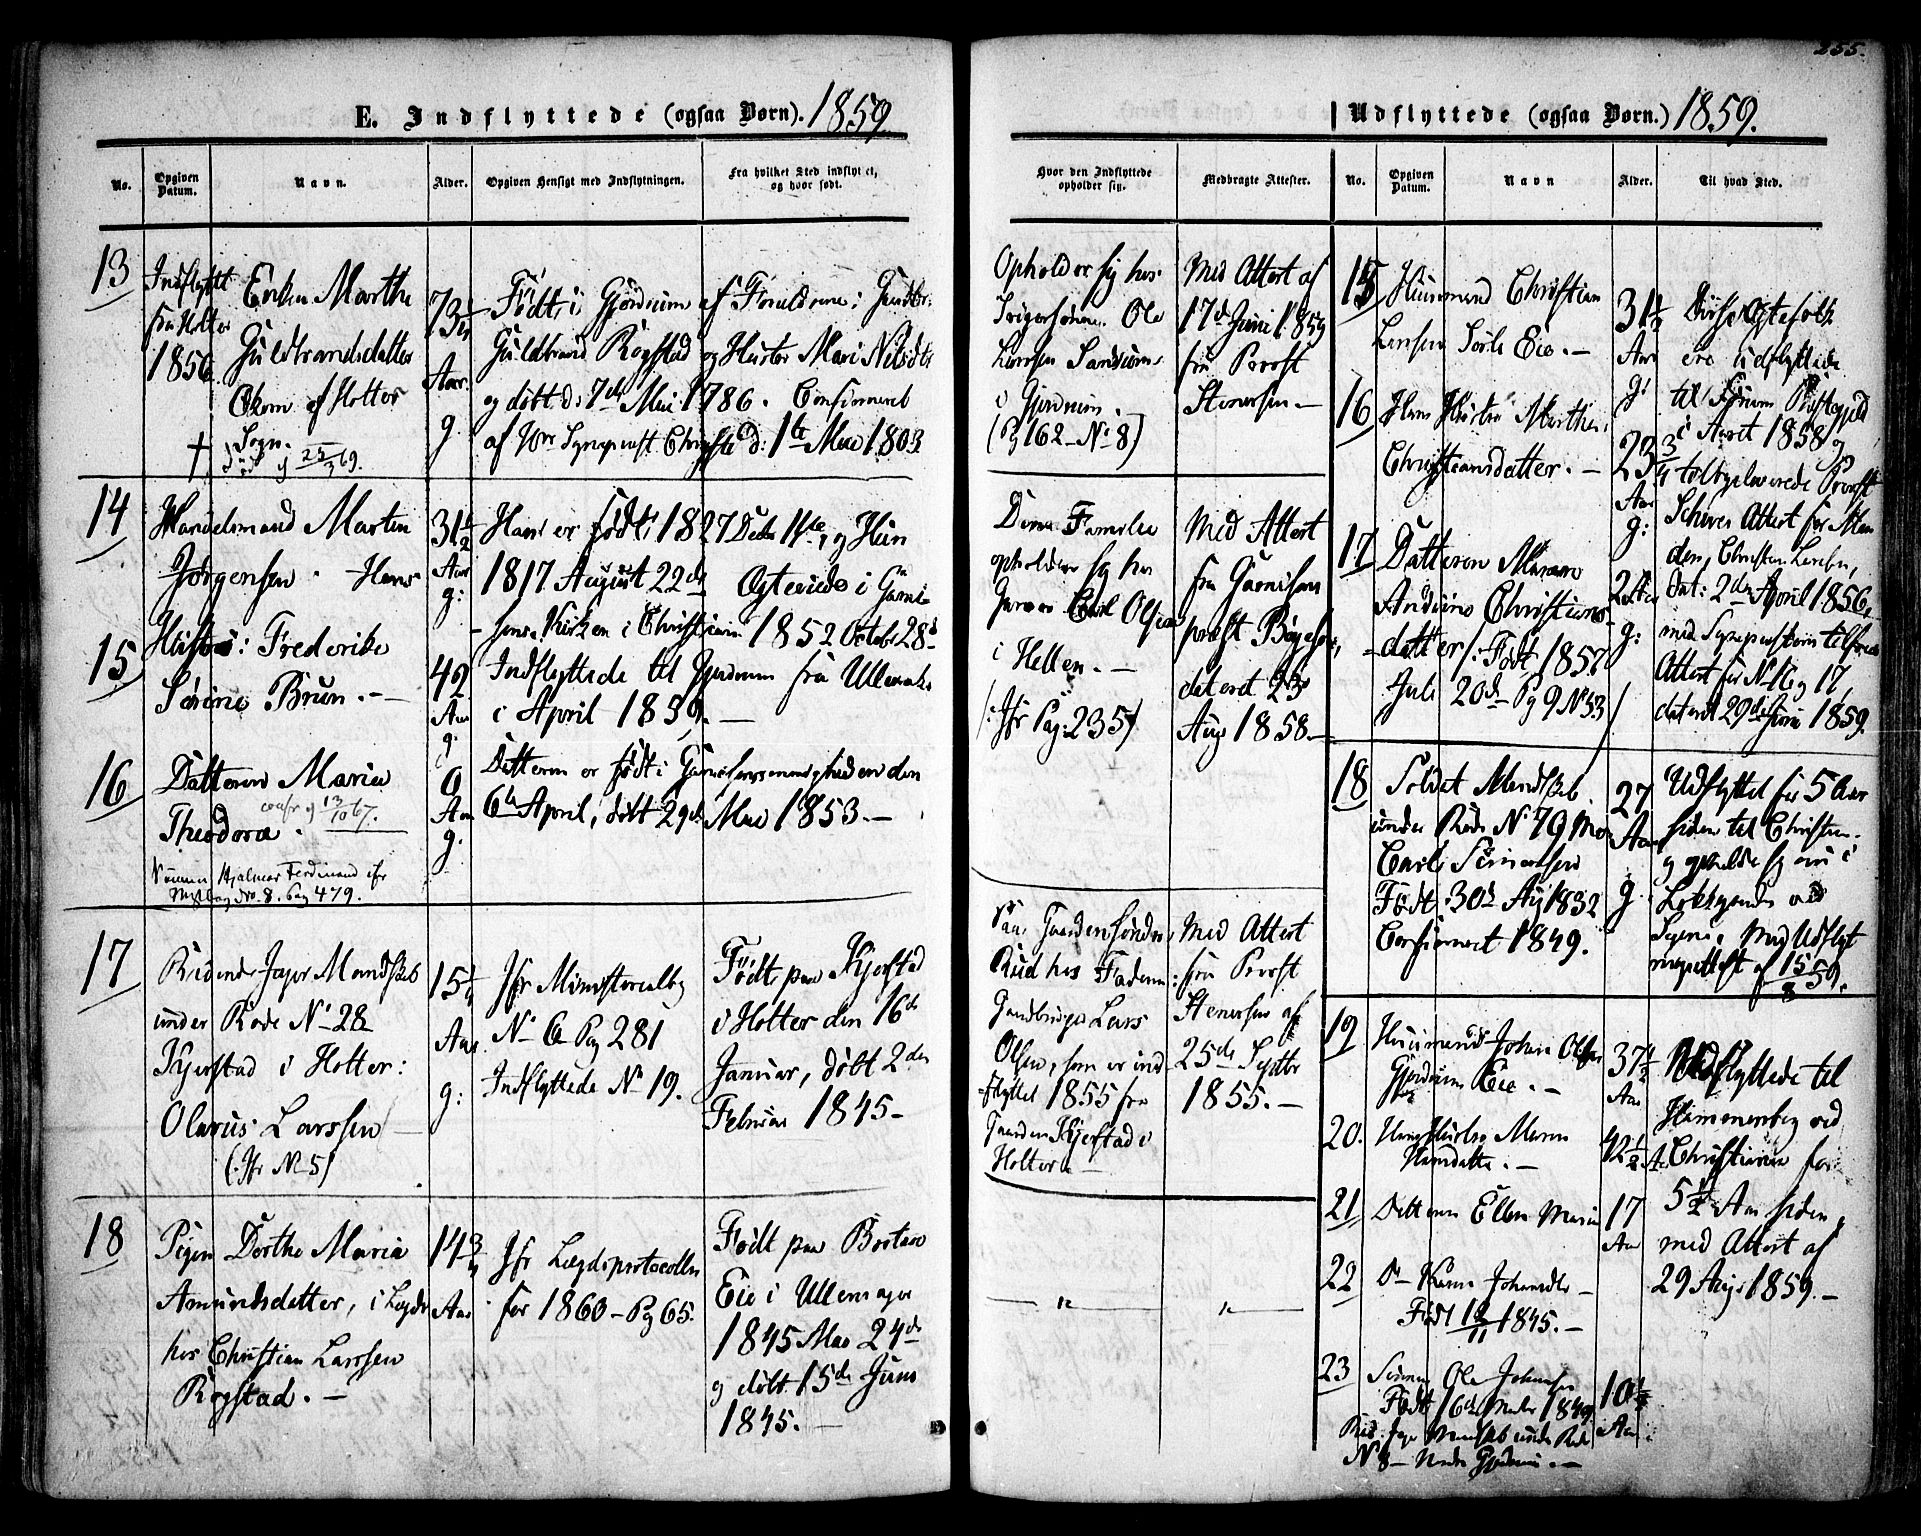 255.
E. Indflyttede (ogsaa Børn). 1859.
No.
Opgiven Datum.
Navn.
Alder.
Opgiven Hensigt med Indflytningen.
Fra hvilket Sted indflyttet, og hvor født.
13
Indflyttet
fra Holter
1856
Enken Marthe
Guldbrandsdatter
af Holter
Sogn.
† død 25/3 69.
73
Aar
g
Født i Gjerdrum af Forældrene: Gaardbr:
Guldbrand Rogstad og Hustro Mari Nilsdtr
og døbt d: 7de Mai 1786. Confirmeret
af 1ste Mai 1803.
14
Handelsmand Martin
Jørgensen. Hans
31½
Aar
g:
Han er født i 1827 Decbr 11te, og Hun
1817 August 22de Ægteviede i Garni-
sons Kirken i Christiania 1852 Octobr 28de
15
Hustro: Frederike
Sørine Brun. —
42
Aar
g.
Indflyttede til Gjerdrum fra Ullensaker
i April 1859. —
16
Datteren Maria
Theodora.
confr g 13/10 67.
6
Aar
g.
Datteren er født i Garnisonsmenigheden den
6te April, døbt 29de Mai 1853. —
Sønnen Hjalmar Ferdinand cfr
No. 8. Pag 479.
17
Ridende Jæger Mandskab
under Rode No 28
Kjerstad i Holter:
Olavus Larssen —
(Jfr No 5)
15¼
Aar
g:
Jfr Ministerialbog
No 6 Pag 281
Indflyttede No 19.
Født paa Kjerstad
i Holter den 16de
Januar, døbt 2den
Februar 1845 —
18
Pigen Dorthe Maria
Amundsdatter, i Lægd
hos Christian Larssen
Rogstad. —
14¾
Aar
Jfr Lægdsprotocollen
for 1860 — Pag 65.
Født paa
Eie i Ullensager
1845 Mai 24de
og døbt 15de Juni
1845. —
Hvor den Indflyttede opholder sig.
Medbragte Attester.
Opholder sig hos
Svigersønnen Ole
Larssen
i Gjerdrum.
(Pag 162 — No 8)
Med Attest af
17de Juni 1859
fra Provst
Stenersen —
Denne Familie
opholder sig hos
Garver Carl Olsen
i Hellen. —
(Jfr Pag: 235)
Med Attest
fra Garnisons
præst
dateret 23
Aug 1858. —
Paa Gaarden Søndre
Rud hos Faderen:
Gaardbruger Lars
Olsen, som er ind-
flyttet 1855 fra
Gaarden Kjerstad i
Holter —
Med Attest
fra Provst
Stenersen af
25de Septbr
1855. —
— " —
" —
Udflyttede (ogsaa Børn.) 1859.
No.
Opgiven Datum.
Navn
Alder.
Til hvad Sted.
15
Huusmand Christian
Larsen Eie. —
31½
Aar
g:
16
Hans Hustro Marthe
Christiansdatter. —
23¾
Aar
g:
17
Datteren Maren
Andrine Christians-
datter /: Født 1857
Juli 20de — Pag 9 No 53 /
2 Aar
g:
Disse Ægtefolk
ere udflyttede
til Præstegjeld
i Aaret 1858 og
Provst
Attest for Man
den, Christian Larsen,
dat: 2den April 1856,
med
Attest for No 16 og 17,
dateret 29de Juni 1859.
18
Soldat Mandskab
under Rode No 79
Carl Simensen
Født 30de Aug 1832
Confirmeret 1849.
27
Aar
g.
Udflyttet for 5 Aar
siden til Christiania
og opholder sig nu i
ved
Med Udflyt
ningsattest af 15/8 59.
19
Huusmand Johan Olsen
Gjerdrum Eie. —
37½
Aar
20.
Hans Hustro Maren
Hansdatter. —
42½ A
21
Datteren Ellen Maria
17
Aar
22
Do — Karen Johansdtr —
Født 12/11 1845. —
23
Sønnen Ole Johansen
Født 16de 1849
Rid. Jæger Mandskab under Rode
No 8 — Nedre Gjerdrum. —
10
Aar
Udflyttede til
ved
Christiania for
5½ Aar siden,
med Attest af
29 Aug. 1859. —